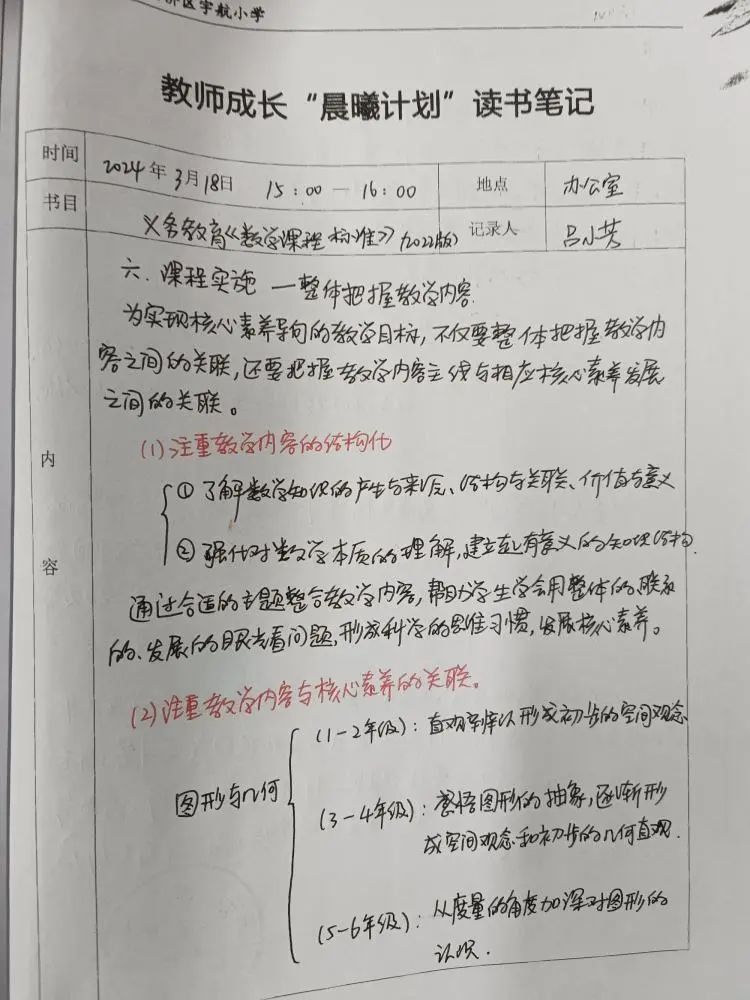 区宇航小学
教师成长“晨曦计划”读书笔记
时间 2024年3月18日 15:00—16:00 地点 办公室
书目 义务教育《数学课程标准》(2022版) 记录人
内容
六、课程实施 —整体把握教学内容
为实现核心素养导向的教学目标,不仅要整体把握教学内
容之间的关联,还要把握教学内容主线与相应核心素养发展
之间的关联。
(1)注重教学内容的结构化
①了解数学知识的产生与来源、结构与关联、价值与意义
②强化对数学本质的理解,建立起有意义的知识结构.
通过合适的主题整合教学内容,帮助学生学会用整体的、联系
的、发展的眼光看问题,形成科学的思维习惯,发展核心素养。
(2)注重教学内容与核心素养的关联。
图形与几何
(1-2年级):直观辨认形成初步的空间观念
(3-4年级):感悟图形的抽象,逐渐形
成空间观念和初步的几何直观.
(5-6年级):从度量的角度加深对图形的
认识.